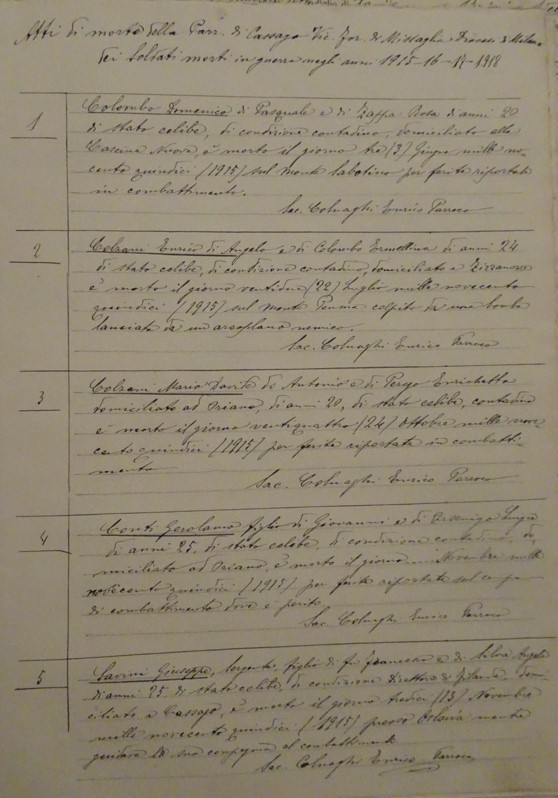 Atti di morte della Parr. di Cassago Vic. For. di Missaglia Diocesi di Milano
dei Soldati morti in guerra negli anni 1915-16-17-1918
1
Colombo Domenico di Pasquale e di Zappa Rosa di anni 20
di stato celibe, di condizione contadino, domiciliato alla
Cascina Nuova, è morto il giorno tre (3) Giugno mille no-
cento quindici (1915) sul monte Sabotino per ferite riportate
in combattimento.
Sac. Colnaghi Enrico Parroco
2
Colzani Enrico di Angelo e di Colombo Ermellina di anni 24
di stato celibe, di condizione contadino, domiciliato a
è morto il giorno ventidue (22) Luglio mille novecento
quindici (1915) sul monte colpito da una bomba
lanciata da un areoplano nemico.
Sac. Colnaghi Enrico Parroco
3
Colzani Mario Davide di Antonio e di Perego Enrichetta
domiciliato ad Oriano, di anni 20, di stato celibe, contadino
è morto il giorno ventiquattro (24) Ottobre mille nove-
cento quindici (1915) per ferite riportate in combatti-
mento
Sac. Colnaghi Enrico Parroco
4
Conti Gerolamo figlio di Giovanni e di Luigia
di anni 25, di stato celibe, di condizione contadino, do-
miciliato ad Oriano, è morto il giorno Novembre mille
novecento quindici (1915) per ferite riportate sul campo
di combattimento dove è perito.
Sac. Colnaghi Enrico Parroco
5
Savini Giuseppe, Sergente, figlio di fu Francesco e di Silva Angela
di anni 25 di stato celibe, di condizione direttore di filanda domi-
ciliato a Cassago, è morto il giorno tredici (13) Novembre
mille novecento quindici (1915) presso Oslavia mentre
guidava la sua compagnia al combattimento
Sac. Colnaghi Enrico Parroco